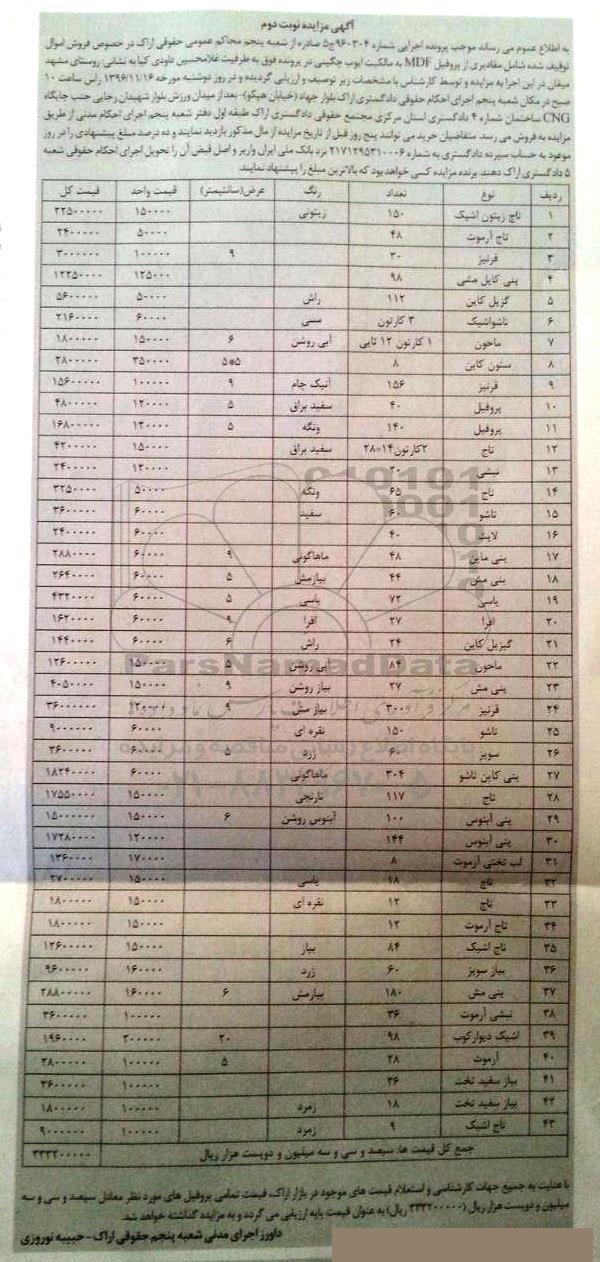 آگهی مزایده نوبت دوم
به اطلاع عموم می رساند بموجب پرونده اجرایی شماره ۹۶۰۳۰۴ج۵ صادره از شعبه پنجم محاکم عمومی حقوقی اراک در خصوص فروش اموال
توقیف شده شامل مقادیری از پروفیل MDF به مالکیت ایوب چگینی در پرونده فوق به طرفیت غلامحسین داودی کیا به نشانی: روستای مشهد
میقان در این اجرا به مزایده و توسط کارشناس با مشخصات زیر توصیف و ارزیابی گردیده و در روز دوشنبه مورخه ۱۳۹۶/۱۱/۱۶ راس ساعت ۱۰
صبح در مکان شعبه پنجم اجرای احکام حقوقی دادگستری اراک بلوار جهاد (خیابان هپکو)- بعد از میدان ورزش بلوار شهیدان رجایی جنب جایگاه
CNG ساختمان شماره ۴ دادگستری استان مرکزی مجتمع حقوقی دادگستری اراک طبقه اول دفتر شعبه پنجم اجرای احکام مدنی از طریق
مزایده به فروش می رسد. متقاضیان خرید می توانند پنج روز قبل از تاریخ مزایده از مال مذکور بازدید نمایند و ده درصد مبلغ پیشنهادی را در روز
موعود به حساب سپرده دادگستری به شماره ۲۱۷۱۲۹۵۳۱۰۰۰۶ نزد بانک ملی ایران واریز و اصل قبض آن را تحویل اجرای احکام حقوقی شعبه
۵ دادگستری اراک دهند. برنده مزایده کسی خواهد بود که بالاترین مبلغ را پیشنهاد نمایند.
ردیف نوع تعداد رنگ عرض(سانتیمتر) قیمت واحد قیمت کل
۱ تاج زیتون اشیک ۱۵۰ زیتونی ۱۵۰۰۰۰ ۲۲۵۰۰۰۰۰
۲ تاج آرموت ۴۸ ۵۰۰۰۰ ۲۴۰۰۰۰۰
۳ قرنیز ۳۰ ۹ ۱۰۰۰۰۰ ۳۰۰۰۰۰۰
۴ پنی کابل مشی ۹۸ ۱۲۵۰۰۰ ۱۲۲۵۰۰۰۰
۵ گزیل کاین ۱۱۲ راش ۵۰۰۰۰ ۵۶۰۰۰۰۰
۶ تاشواشیک ۳ کارتون مسی ۶۰۰۰۰ ۲۱۶۰۰۰۰
۷ ماحون ۱ کارتون ۱۲ تایی آبی روشن ۶ ۱۵۰۰۰۰ ۱۸۰۰۰۰۰
۸ ستون کاین ۸ ۵*۵ ۳۵۰۰۰۰ ۲۸۰۰۰۰۰
۹ قرنیز ۱۵۶ آنیک جام ۹ ۱۰۰۰۰۰ ۱۵۶۰۰۰۰۰
۱۰ پروفیل ۴۰ سفید براق ۵ ۱۲۰۰۰۰ ۴۸۰۰۰۰۰
۱۱ پروفیل ۱۴۰ ونگه ۵ ۱۲۰۰۰۰ ۱۶۸۰۰۰۰۰
۱۲ تاج ۲کارتون۱۴=۲۸ سفید براق ۱۵۰۰۰۰ ۴۲۰۰۰۰۰
۱۳ نبشی ۲۰ ۱۲۰۰۰۰ ۲۴۰۰۰۰۰
۱۴ تاج ۶۵ ونگه ۵۰۰۰۰ ۳۲۵۰۰۰۰
۱۵ تاشو ۶۰ سفید ۶۰۰۰۰ ۳۶۰۰۰۰۰
۱۶ لایت ۴۰ ۶۰۰۰۰ ۲۴۰۰۰۰۰
۱۷ پنی ماین ۴۸ ماهاگونی ۹ ۶۰۰۰۰ ۲۸۸۰۰۰۰
۱۸ پنی مش ۴۴ بیازمش ۵ ۶۰۰۰۰ ۲۶۴۰۰۰۰
۱۹ یاسی ۷۲ یاسی ۵ ۶۰۰۰۰ ۴۳۲۰۰۰۰
۲۰ افرا ۲۷ افرا ۹ ۶۰۰۰۰ ۱۶۲۰۰۰۰
۲۱ گیزیل کاین ۲۴ راش ۶ ۶۰۰۰۰ ۱۴۴۰۰۰۰
۲۲ ماحون ۸۴ آبی روشن ۵ ۱۵۰۰۰۰ ۱۲۶۰۰۰۰۰
۲۳ پنی مش ۲۷ بیاز روشن ۹ ۱۵۰۰۰۰ ۴۰۵۰۰۰۰
۲۴ قرنیز ۳۰۰ بیاز مش ۹ ۱۲۰۰۰۰ ۳۶۰۰۰۰۰۰
۲۵ تاشو ۱۵۰ نقره ای ۶۰۰۰۰ ۹۰۰۰۰۰۰
۲۶ سویز ۶۰ زرد ۵ ۶۰۰۰۰ ۳۶۰۰۰۰۰
۲۷ پنی کاین تاشو ۳۰۴ ماهاگونی ۶۰۰۰۰ ۱۸۲۴۰۰۰۰
۲۸ تاج ۱۱۷ نارنجی ۱۵۰۰۰۰ ۱۷۵۵۰۰۰۰
۲۹ پنی آبنوس ۱۰۰ آبنوس روشن ۶ ۱۵۰۰۰۰ ۱۵۰۰۰۰۰۰
۳۰ پنی آبنوس ۱۴۴ ۱۲۰۰۰۰ ۱۷۲۸۰۰۰۰
۳۱ لب تختی آرموت ۸ ۱۷۰۰۰۰ ۱۳۶۰۰۰۰
۳۲ تاج ۱۸ یاسی ۱۵۰۰۰۰ ۲۷۰۰۰۰۰
۳۳ تاج ۱۲ نقره ای ۱۵۰۰۰۰ ۱۸۰۰۰۰۰
۳۴ تاج آرموت ۱۲ ۱۵۰۰۰۰ ۱۸۰۰۰۰۰
۳۵ تاج اشیک ۸۴ بیاز ۱۵۰۰۰۰ ۱۲۶۰۰۰۰۰
۳۶ بیاز سویز ۶۰ زرد ۱۶۰۰۰۰ ۹۶۰۰۰۰۰
۳۷ پنی مش ۱۸۰ بیازمش ۶ ۱۶۰۰۰۰ ۲۸۸۰۰۰۰۰
۳۸ نبشی آرموت ۳۶ ۱۰۰۰۰۰ ۳۶۰۰۰۰۰
۳۹ اشیک دیوارکوب ۹۸ ۲۰ ۲۰۰۰۰۰ ۱۹۶۰۰۰۰
۴۰ آرموت ۲۸ ۵ ۱۰۰۰۰۰ ۲۸۰۰۰۰۰
۴۱ بیاز سفید تخت ۳۶ ۱۰۰۰۰۰ ۳۶۰۰۰۰۰
۴۲ بیاز سفید تخت ۱۸ زمرد ۱۰۰۰۰۰ ۱۸۰۰۰۰۰
۴۳ تاج اشیک ۹ زمرد ۱۰۰۰۰۰ ۹۰۰۰۰۰۰
جمع کل قیمت ها: سیصد و سی و سه میلیون و دویست هزار ریال ۳۳۳۲۰۰۰۰۰
با عنایت به جمیع جهات کارشناسی و استعلام قیمت های موجود در بازار اراک، قیمت تمامی پروفیل های مورد نظر معادل سیصد و سی و سه
میلیون و دویست هزار ریال (۳۳۳۲۰۰۰۰۰ ریال) به عنوان قیمت پایه ارزیابی می گردد و به مزایده گذاشته خواهد شد.
داورز اجرای مدنی شعبه پنجم حقوقی اراک- حبیبه نوروزی
ParsNamadData